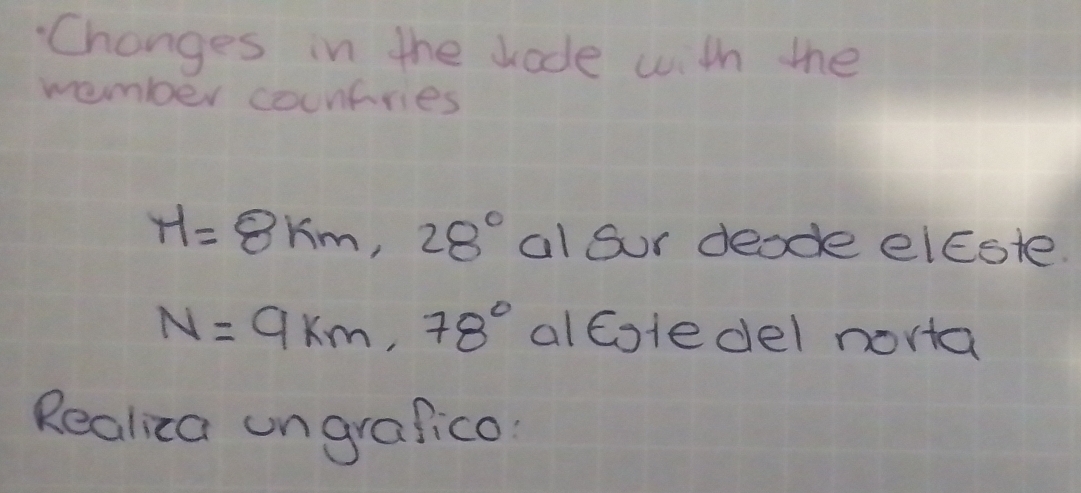 ·Changes in the trade with the
member countries
H= 8 Km, 28° al Sur desde el Este.
N= 9 Km, 78° al Este del norta
Realiza un grafico: